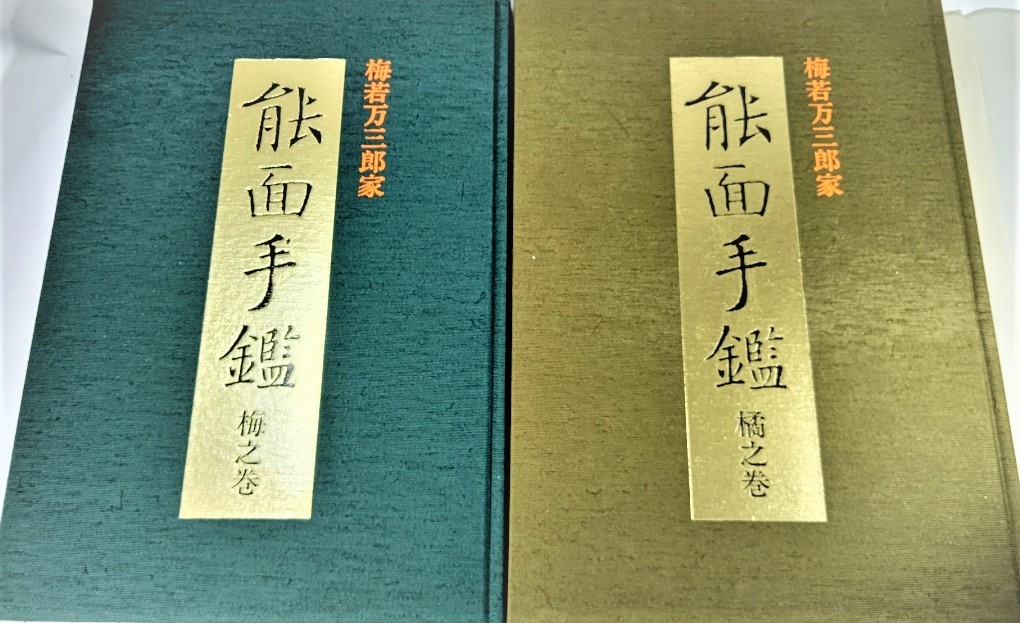 梅若万三郎家
能面手鑑 梅之巻
梅若万三郎家
能面手鑑 橘之巻